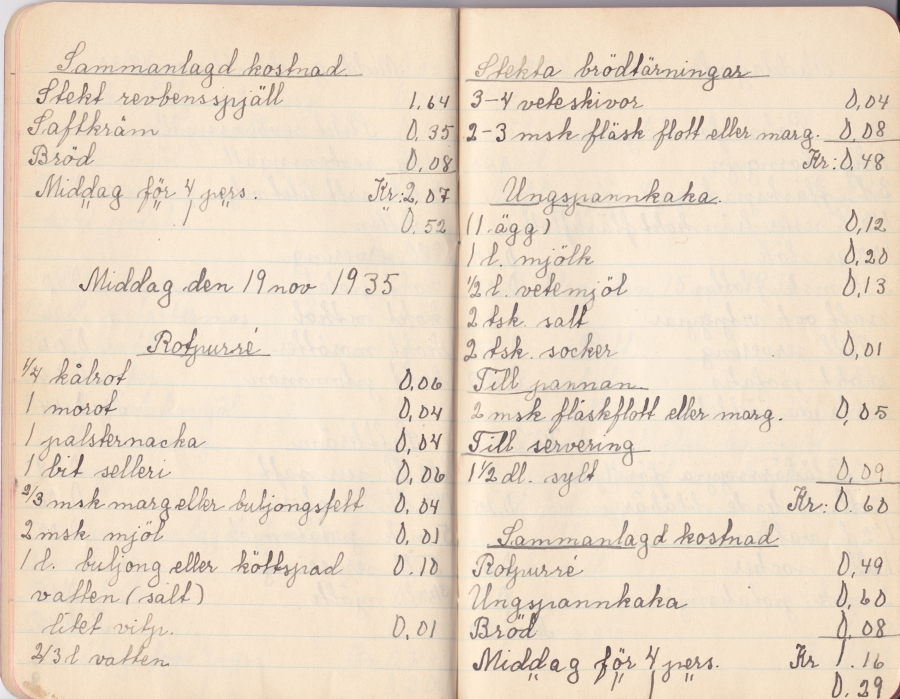 Sammanlagd kostnad.
Stekt revbensspjäll 1,64
Saftkräm 0.35
Bröd 0,08
Middag för 4 pers. Kr:2,07
" " 1 " 0.52
Middag den 19 nov 1935
Rotpurré
1/4 kålrot 0,06
1 morot 0,04
1 palsternacka 0,04
1 bit selleri 0,06
2/3 msk marg eller buljongsfett 0,04
2 msk mjöl 0,01
1 l. buljong eller köttspad 0.10
vatten (salt)
litet vitp. 0,01
2/3 l vatten
Stekta brödtärningar
3-4 veteskivor 0,04
2-3 msk fläsk flott eller marg. 0,08
Kr:0,48
Ungspannkaka.
(1 ägg) 0,12
1 l. mjölk 0,20
1/2 l. vetemjöl 0,13
2 tsk. salt
2 tsk. socker 0,01
Till pannan.
2 msk fläskflott eller marg. 0,05
Till servering
1 1/2 dl. sylt 0,09
Kr: 0.60
Sammanlagd kostnad
Rotpurré 0,49
Ungspannkaka 0,60
Bröd 0,08
Middag för 4 pers. Kr 1.16
" " 1 " 0.29